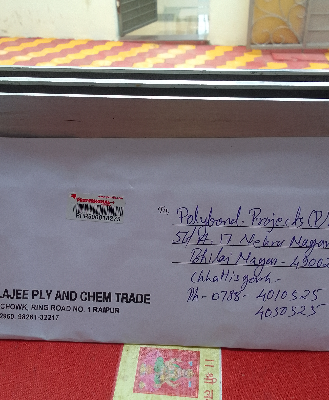 To,
Polybond Projects (P)
51/A 17 Nehru Nagar
Bhilai Nagar - 49002
Chhattisgarh -
Ph - 0788 - 4010525
4030525
LAJEE PLY AND CHEM TRADE
CHOWK, RING ROAD NO. 1 RAIPUR
2960, 98261-32217